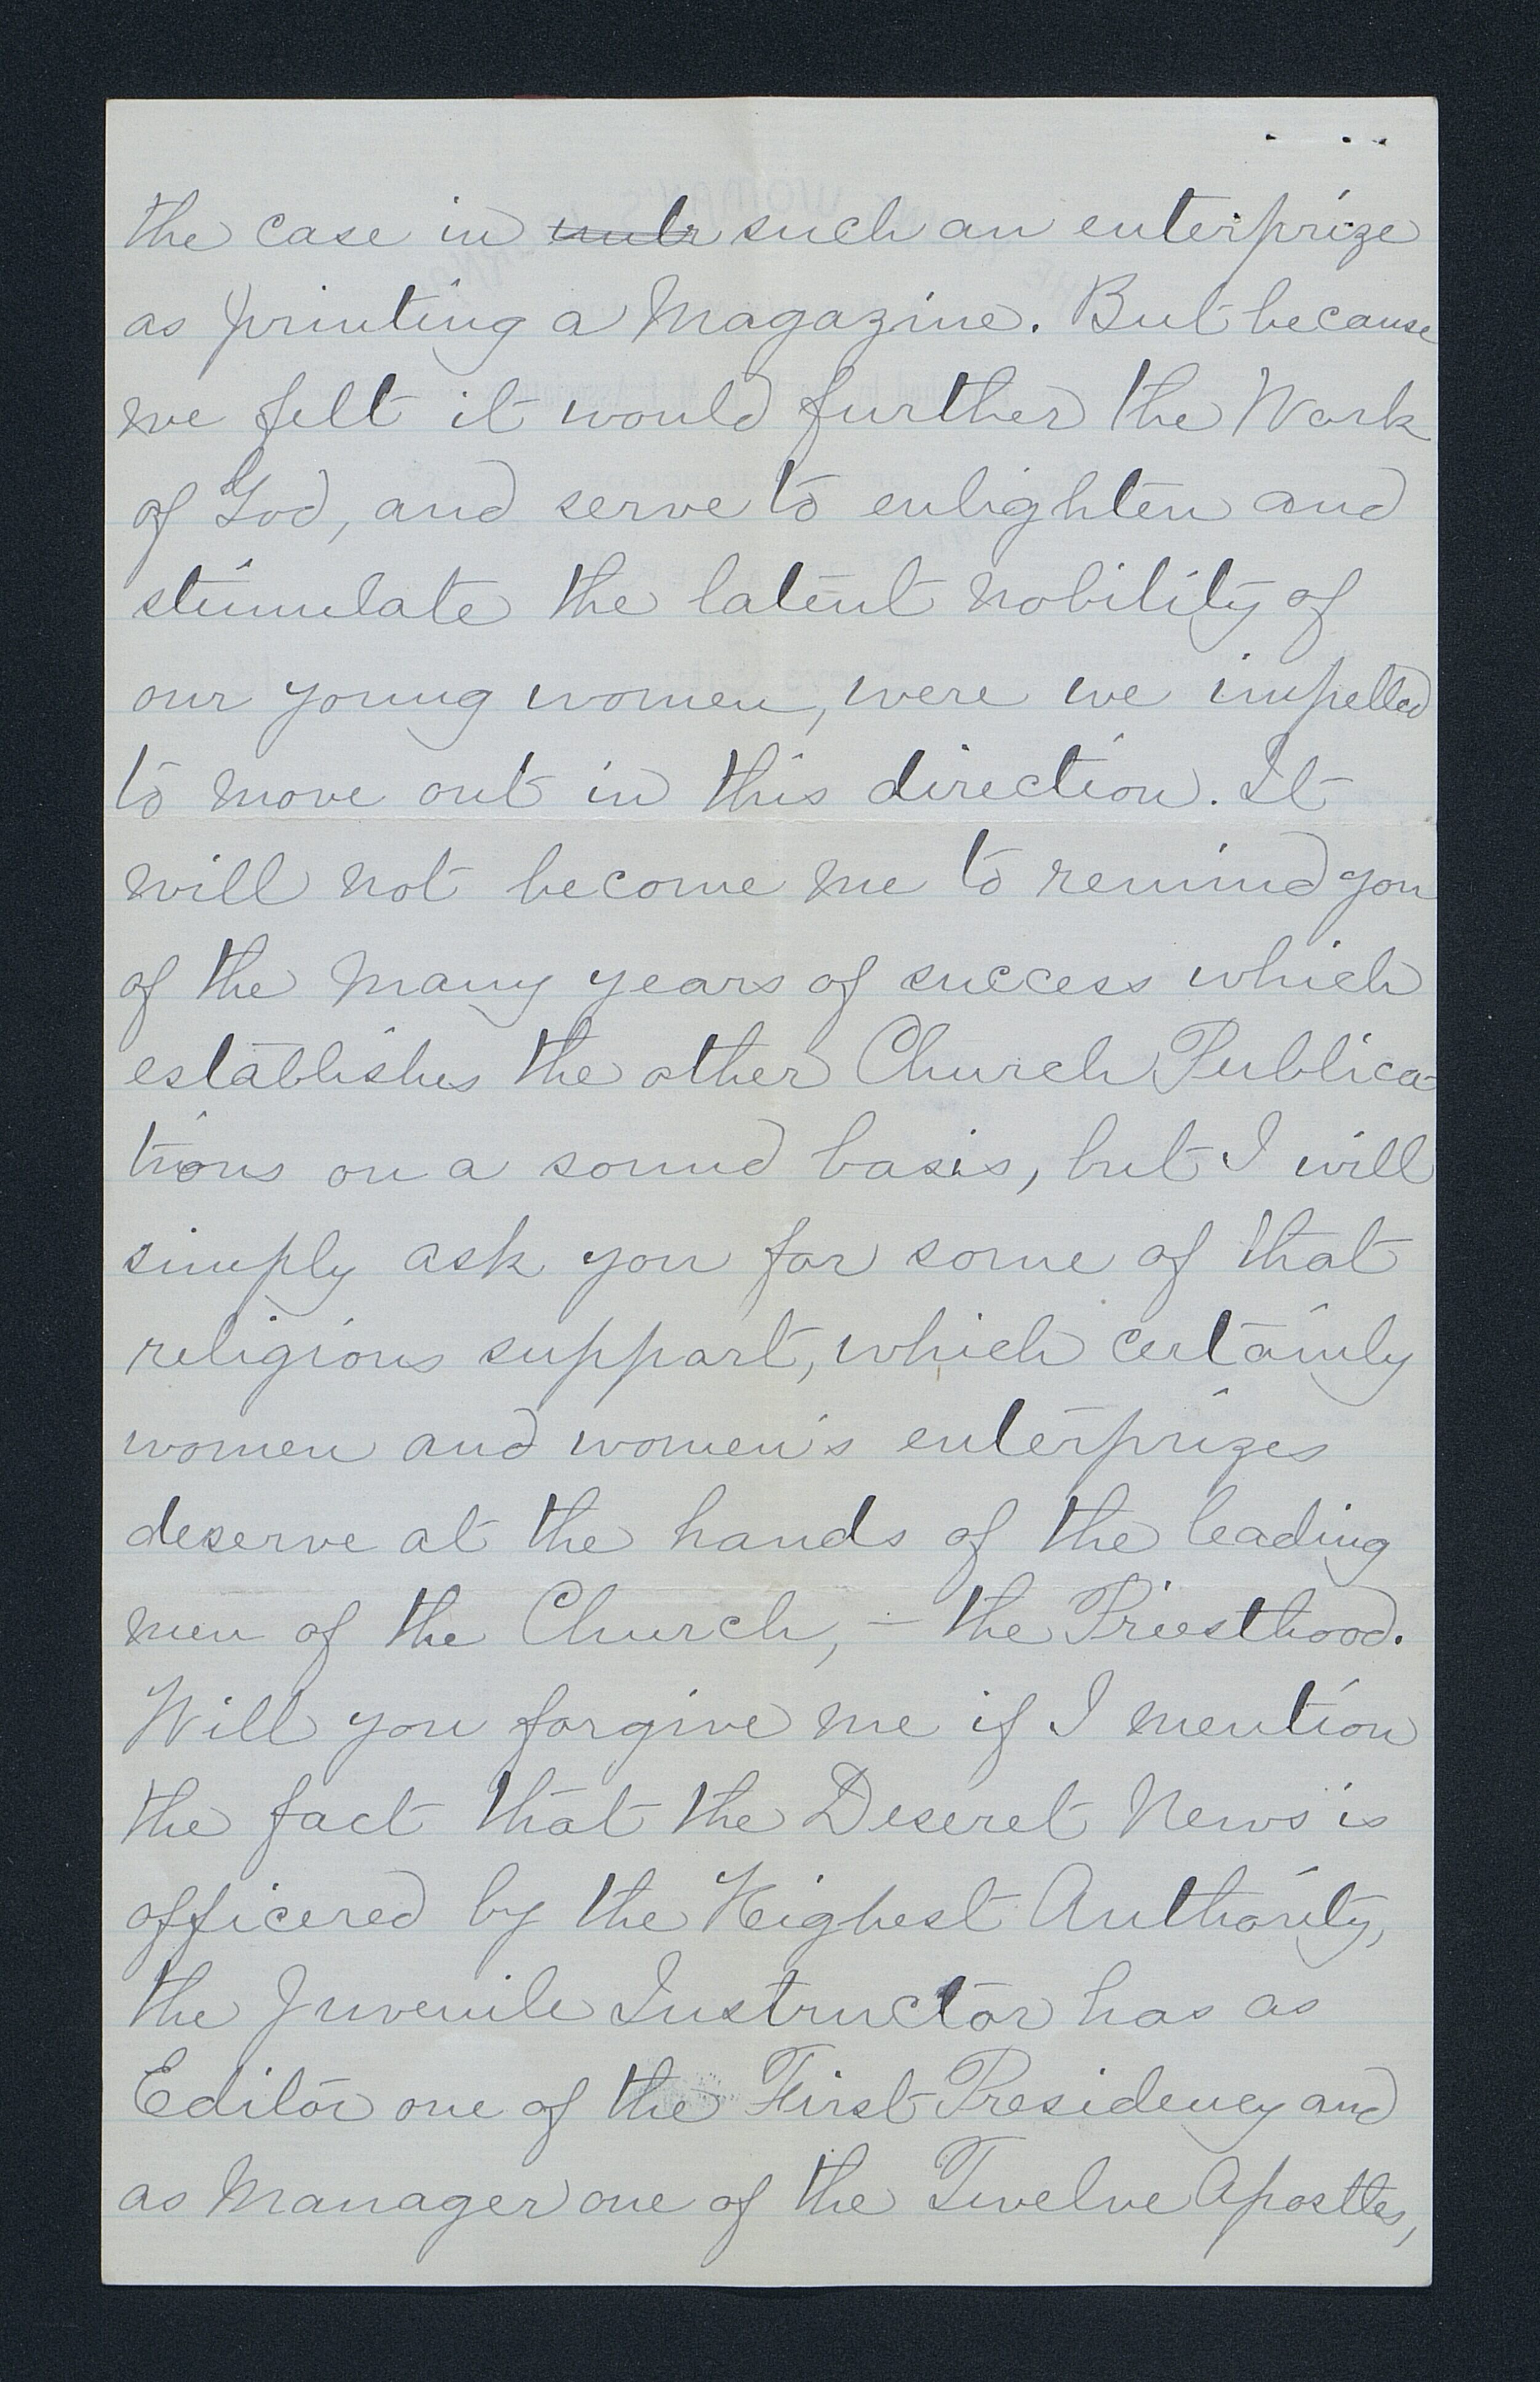 the case in such an enterprize
as printing a Magazine. But because
we felt it would further the Work
of God, and serve to enlighten and
stimulate the latent nobility of
our young women, were we impelled
to move out in this direction. It
will not become me to remind you
of the many years of success which
establishes the other Church Publica-
tions on a sound basis, but I will
simply ask you for some of that
religious support, which certainly
women and women's enterprizes
deserve at the hands of the leading
men of the Church, – the Priesthood.
Will you forgive me if I mention
the fact that the Deseret News is
officered by the Highest Authority,
the Juvenile Instructor has as
Editor one of the First Presidency and
as Manager one of the Twelve Apostles,